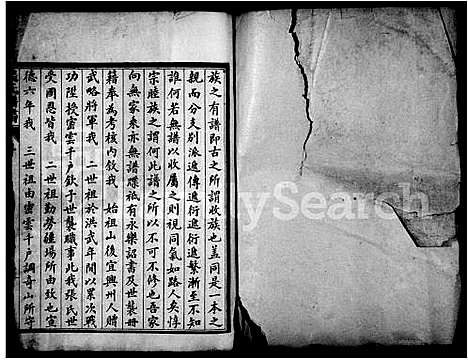 族之有譜即古之所謂收族也蓋同是一本之
親而分支別派遞傳遞衍遞衍遞繁漸至不知
誰何若無譜以收屬之則視同氣如路人奚惇
宗睦族之謂何此譜之所以不可不修也吾家
向無家乘亦無譜牒祗有永樂詔書及世襲冊
籍奉為考核內敘我　始祖山後宜興州人贈
武略將軍我　二世祖於洪武年間以累次戰
功陞授雲雲千戶欽子世襲職事此我張氏世
受國恩皆我　二世祖勤勞疆場所由致也宣
德六年我　三世祖由雲雲千戶調奇山所守
MySearch